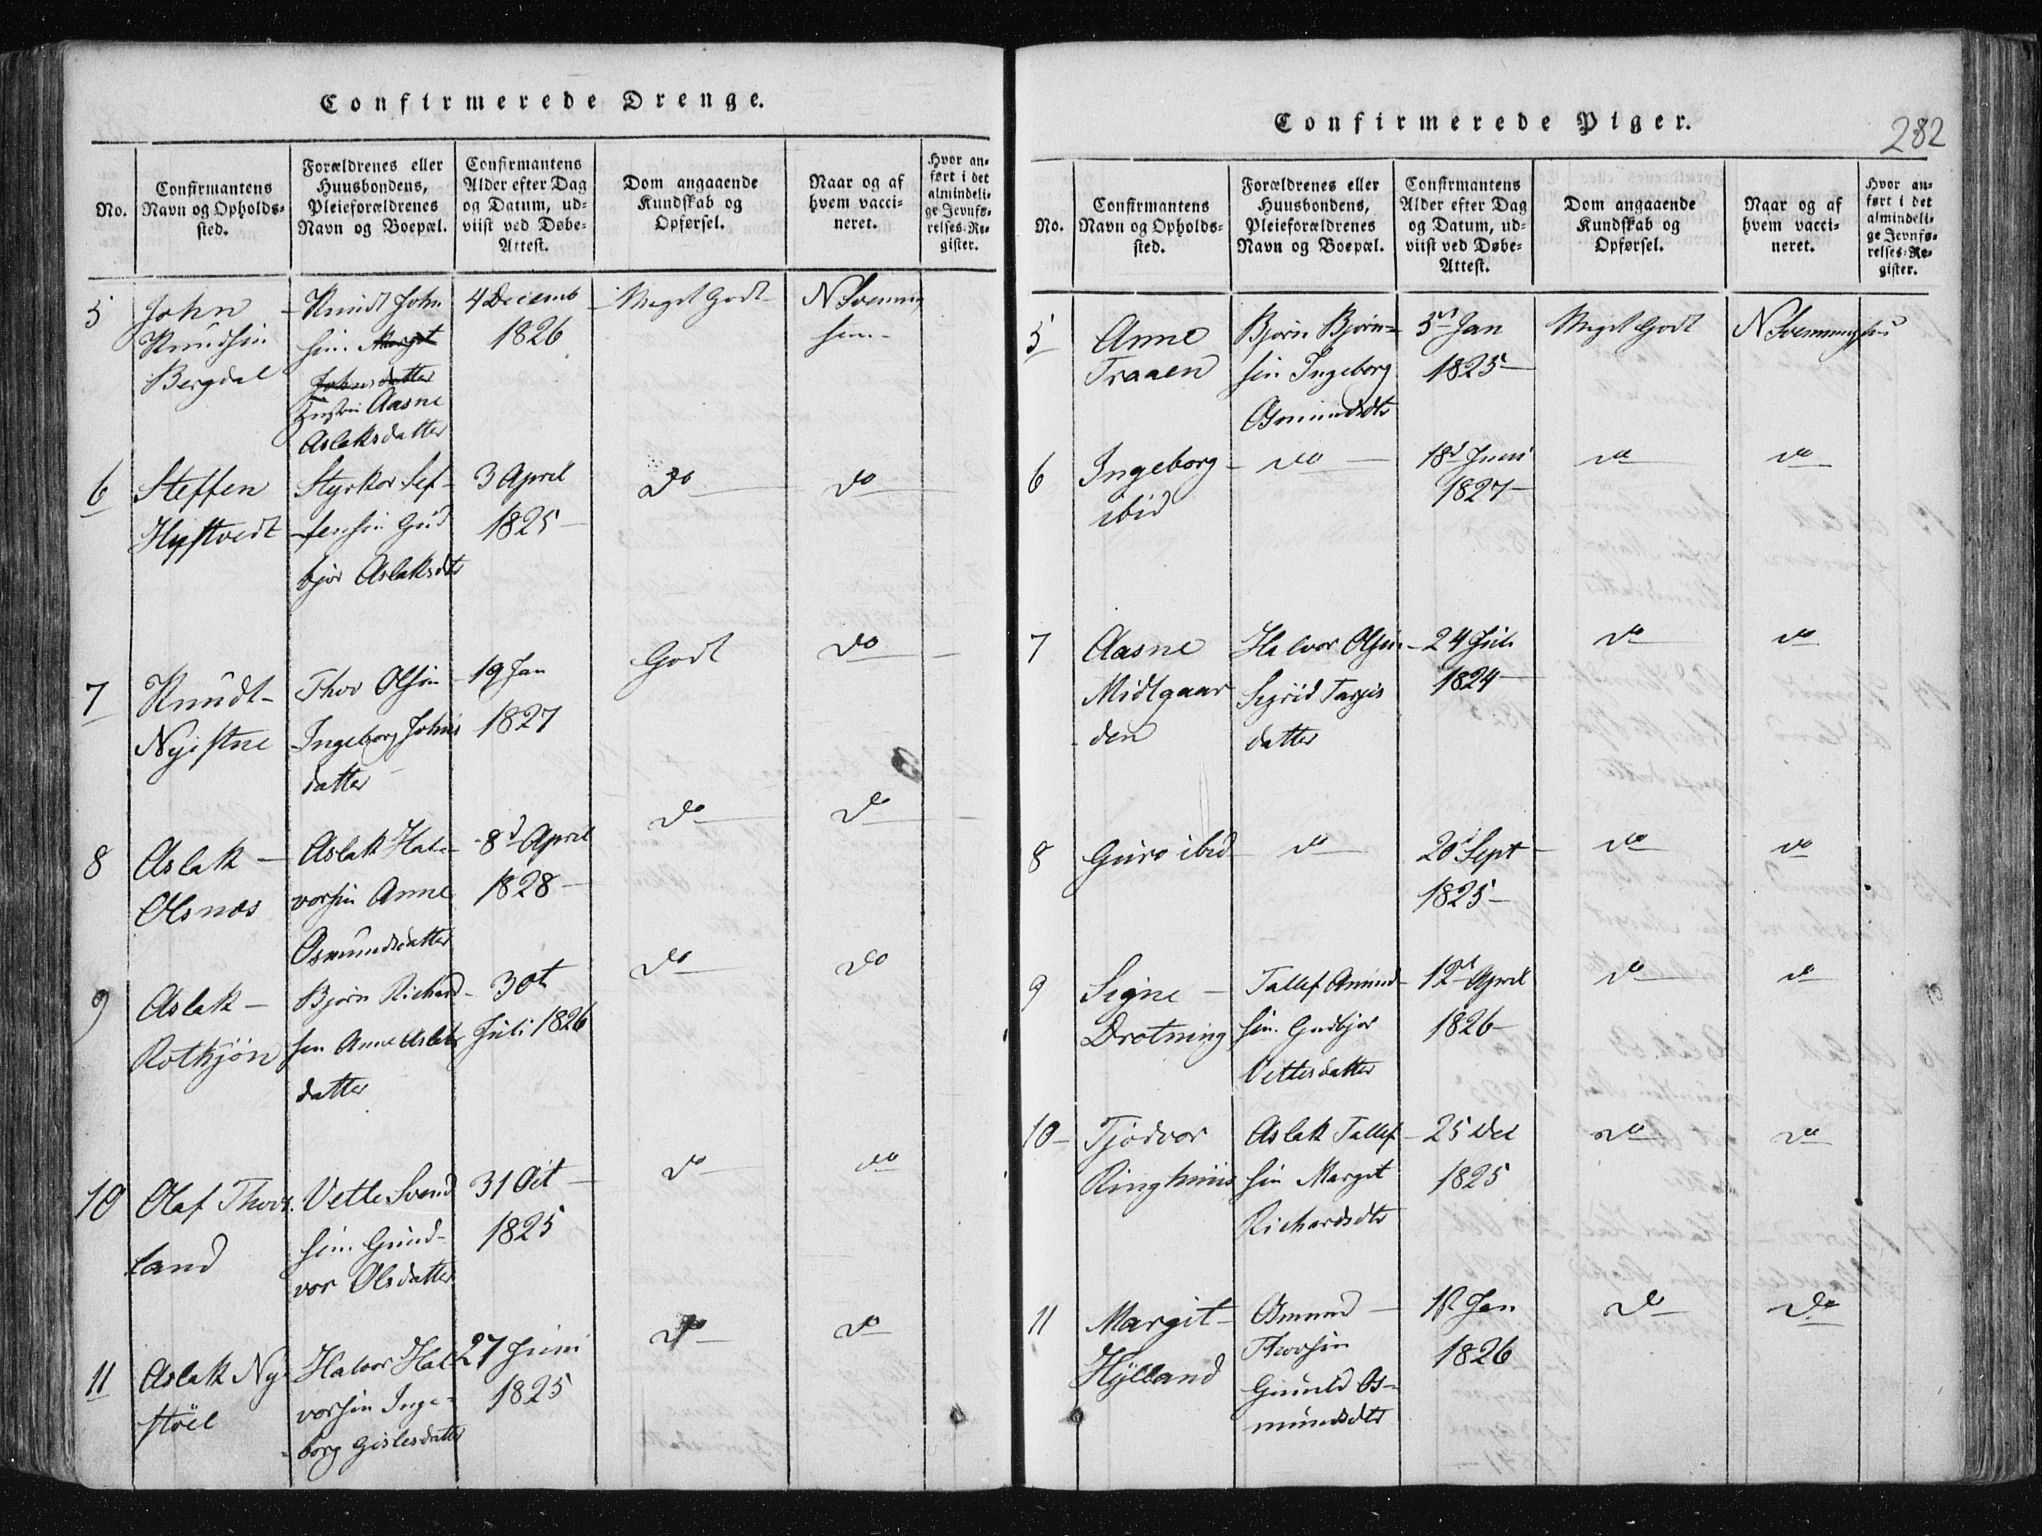 Confirmerede Drenge.
No.
Confirmantens
Navn og Opholds-
sted.
Forældrenes eller
Huusbondens,
Pleieforældrenes
Navn og Boepæl.
Confirmantens
Alder efter Dag
og Datum, ud-
viist ved Døbe-
Attest.
Dom angaaende
Kundskab og
Opførsel.
Naar og af
hvem vacci-
neret.
Hvor an-
ført i det
almindeli-
ge Jevnfø-
relses-Re-
gister.
5
John
Knudsen
Bergdal
Knudt John
sen Margit
Johnsdatter
Aasne
Aslaksdatter
4 Decemb
1826
Meget Godt
N Svenning
sen
6
Steffen
Hystvedt
Styrkor Stef
fensen Gud
bjør Aslaksdtr
3 April
1825
Do
Do
7
Knudt
Nyistue
Thor Olsen
Ingeborg Johns
datter
19 Jan
1827
Godt
Do
8
Aslak
Olsnæs
Aslak Hal-
vorsen Anne
Osmundsdatter
8d April
1828
Do
Do
9
Aslak
Rotkjøn
Bjørn Richard
sen Anne Aslaks
datter
30t
Juli 1826
Do
Do
10
Olaf Thors
land
Vetle Svend
sen Gund-
vor Olsdatter
31 Oct
1825
Do
Do
11
Aslak Ny
støel
Halvor Hal
vorsen Inge-
borg Gislesdatter
27 Juni
1825
Do
Do
Confirmerede Piger.
282
No.
Confirmantens
Navn og Opholds-
sted.
Forældrenes eller
Huusbondens,
Pleieforældrenes
Navn og Boepæl.
Confirmantens
Alder efter Dag
og Datum, ud-
viist ved Døbe-
Attest.
Dom angaaende
Kundskab og
Opførsel.
Naar og af
hvem vacci-
neret.
Hvor an-
ført i det
almindeli-
ge Jevnfø-
relses-Re-
gister.
5
Anne
Traaen
Bjørn Bjørn-
sen Ingeborg
Osmundsdtr
5d Jan
1825
Meget Godt
N Svenningsen
6
Ingeborg
ibid
do
18d Juni
1827
do
do
7
Aasne
Midtgaar
den
Halvor Olsen
Sigrid Targis
datter
24 Juli
1824
do
do
8
Guro ibid
do
20d Sept
1825
do
do
9
Signe
Drotning
Tallef Amund
sen Gudbjør
Vetlesdatter
12d April
1826
do
do
10
Tjodvor
Ringhuus
Aslak Tallef
sen Margit
Richardsdtr
25 Dec
1825
do
do
11
Margit
Hylland
Osmund
Thorsen
Gunild Os-
mundsdtr
12 Jan
1826
Do
Do